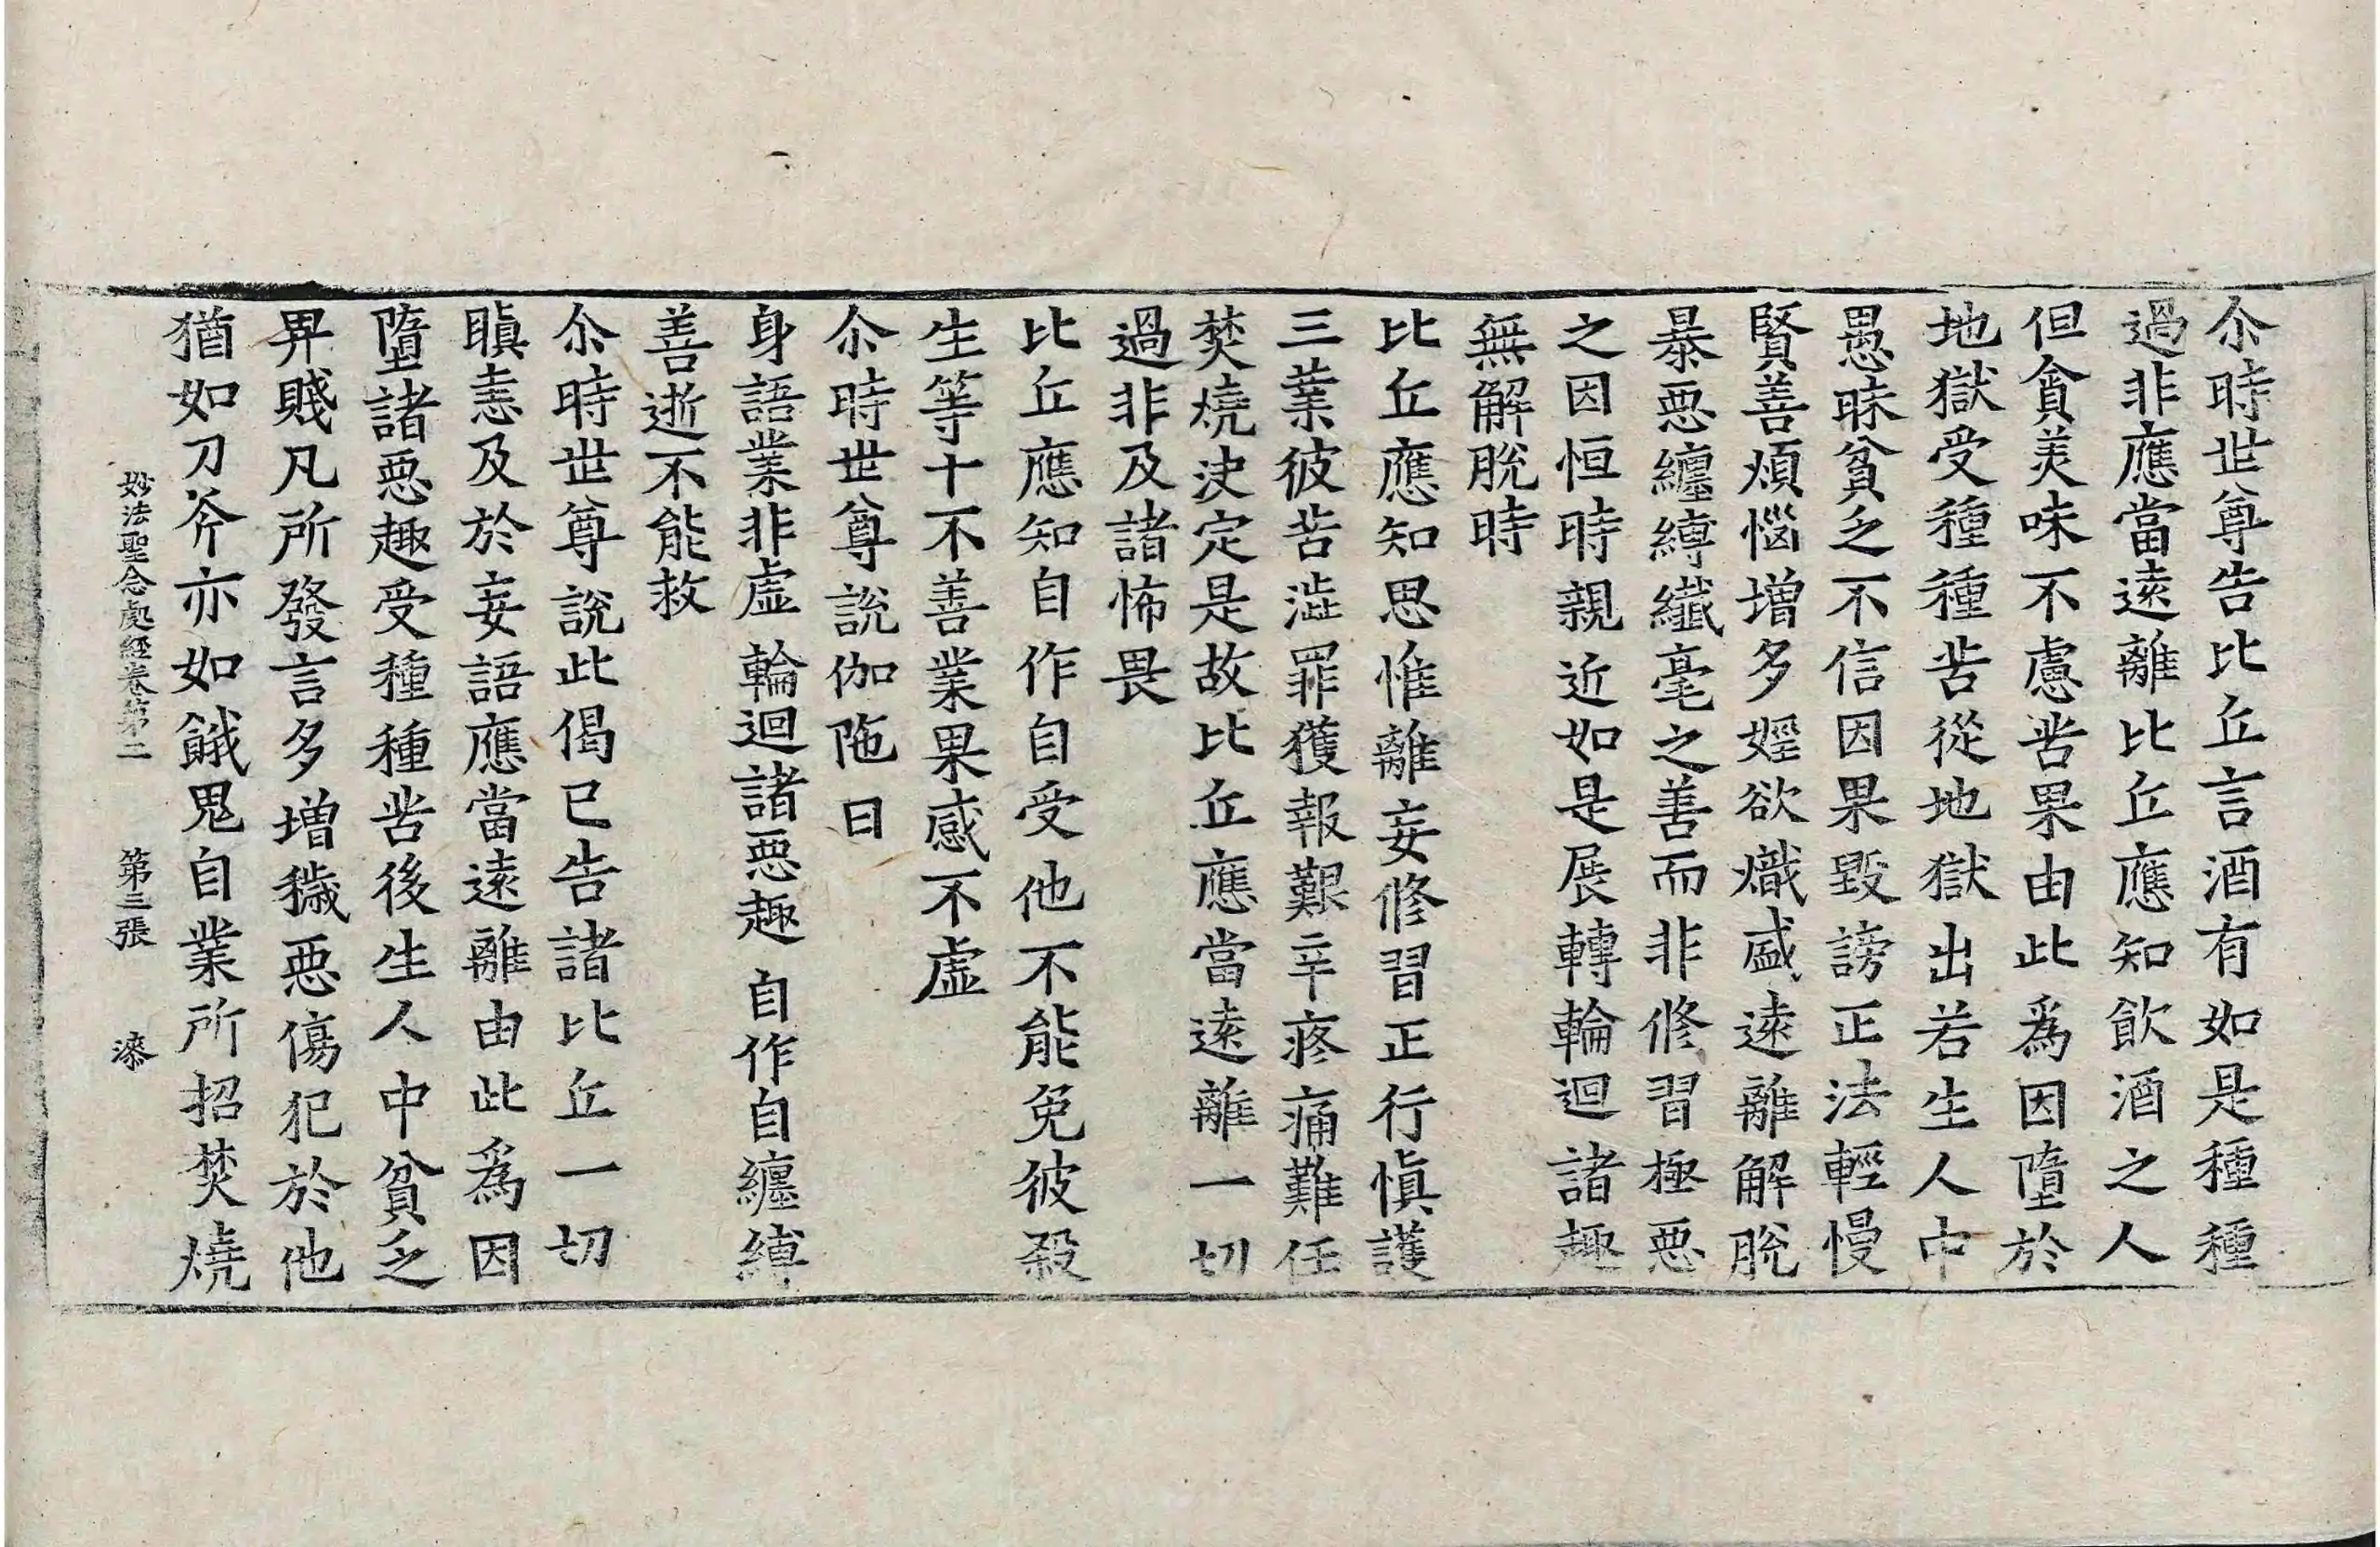 尒時世尊告比丘言酒有如是種種
過非應當遠離比丘應知飲酒之人
但貪美味不慮苦果由此為因墮於
地獄受種種苦從地獄出若生人中
愚昧貧乏不信因果毀謗正法輕慢
賢善煩惱增多婬欲熾盛遠離解脫
暴惡纏縛纖毫之善而非修習極惡
之因恒時親近如是展轉輪迴諸趣
無解脫時
比丘應知思惟離妄修習正行慎護
三業彼苦澁罪獲報艱辛疼痛難任
焚燒決定是故比丘應當遠離一切
過非及諸怖畏
比丘應知自作自受他不能免彼殺
生等十不善業果感不虛
尒時世尊說伽陁曰
身語業非虛 輪迴諸惡趣 自作自纏縛
善逝不能救
尒時世尊說此偈已告諸比丘一切
瞋恚及於妄語應當遠離由此為因
墮諸惡趣受種種苦後生人中貧乏
畀賤凡所發言多增穢惡傷犯於他
猶如刀斧亦如餓鬼自業所招焚燒
妙法聖念處經卷第二 第三張 漆